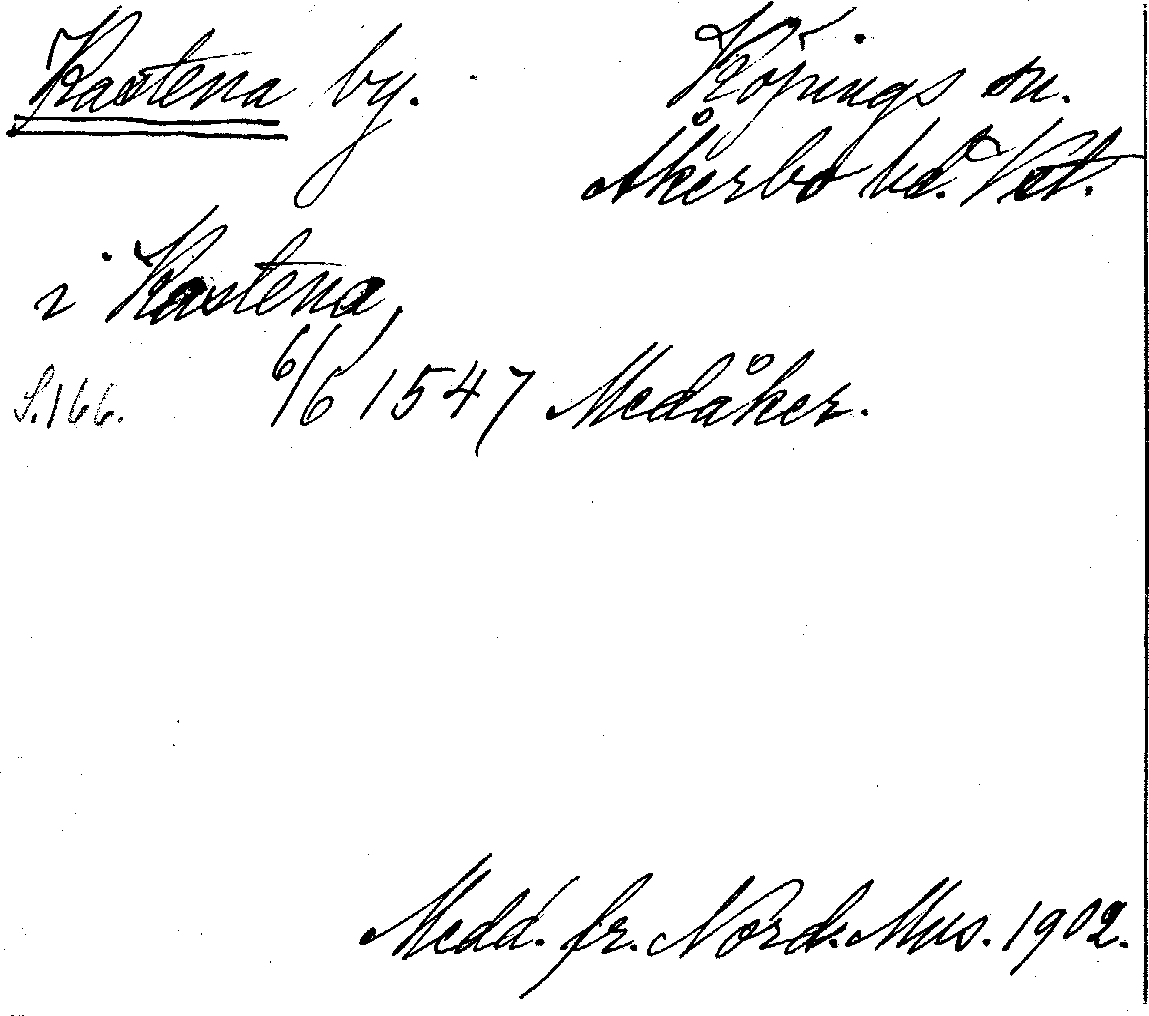 Kastena by.
Köpings sn.
Åkerbo hd. Vstm.
i Kastena,
S. 166. 6/6 1547 Medåker.
Medd. fr. Nord. Mus. 1902.